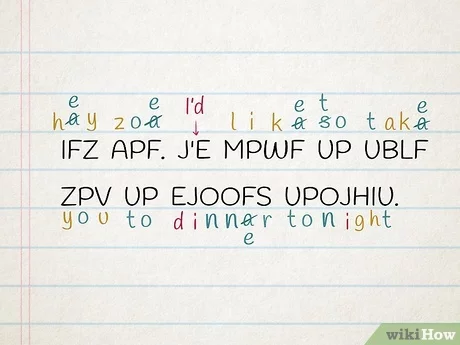 e e I'd e t e
hay zoa lika so taka
IFZ APF. J'E MPWF UP UBLF
ZPV UP EJOOFS UPOJHIU.
you to dinnar tonight
e
wikiHow